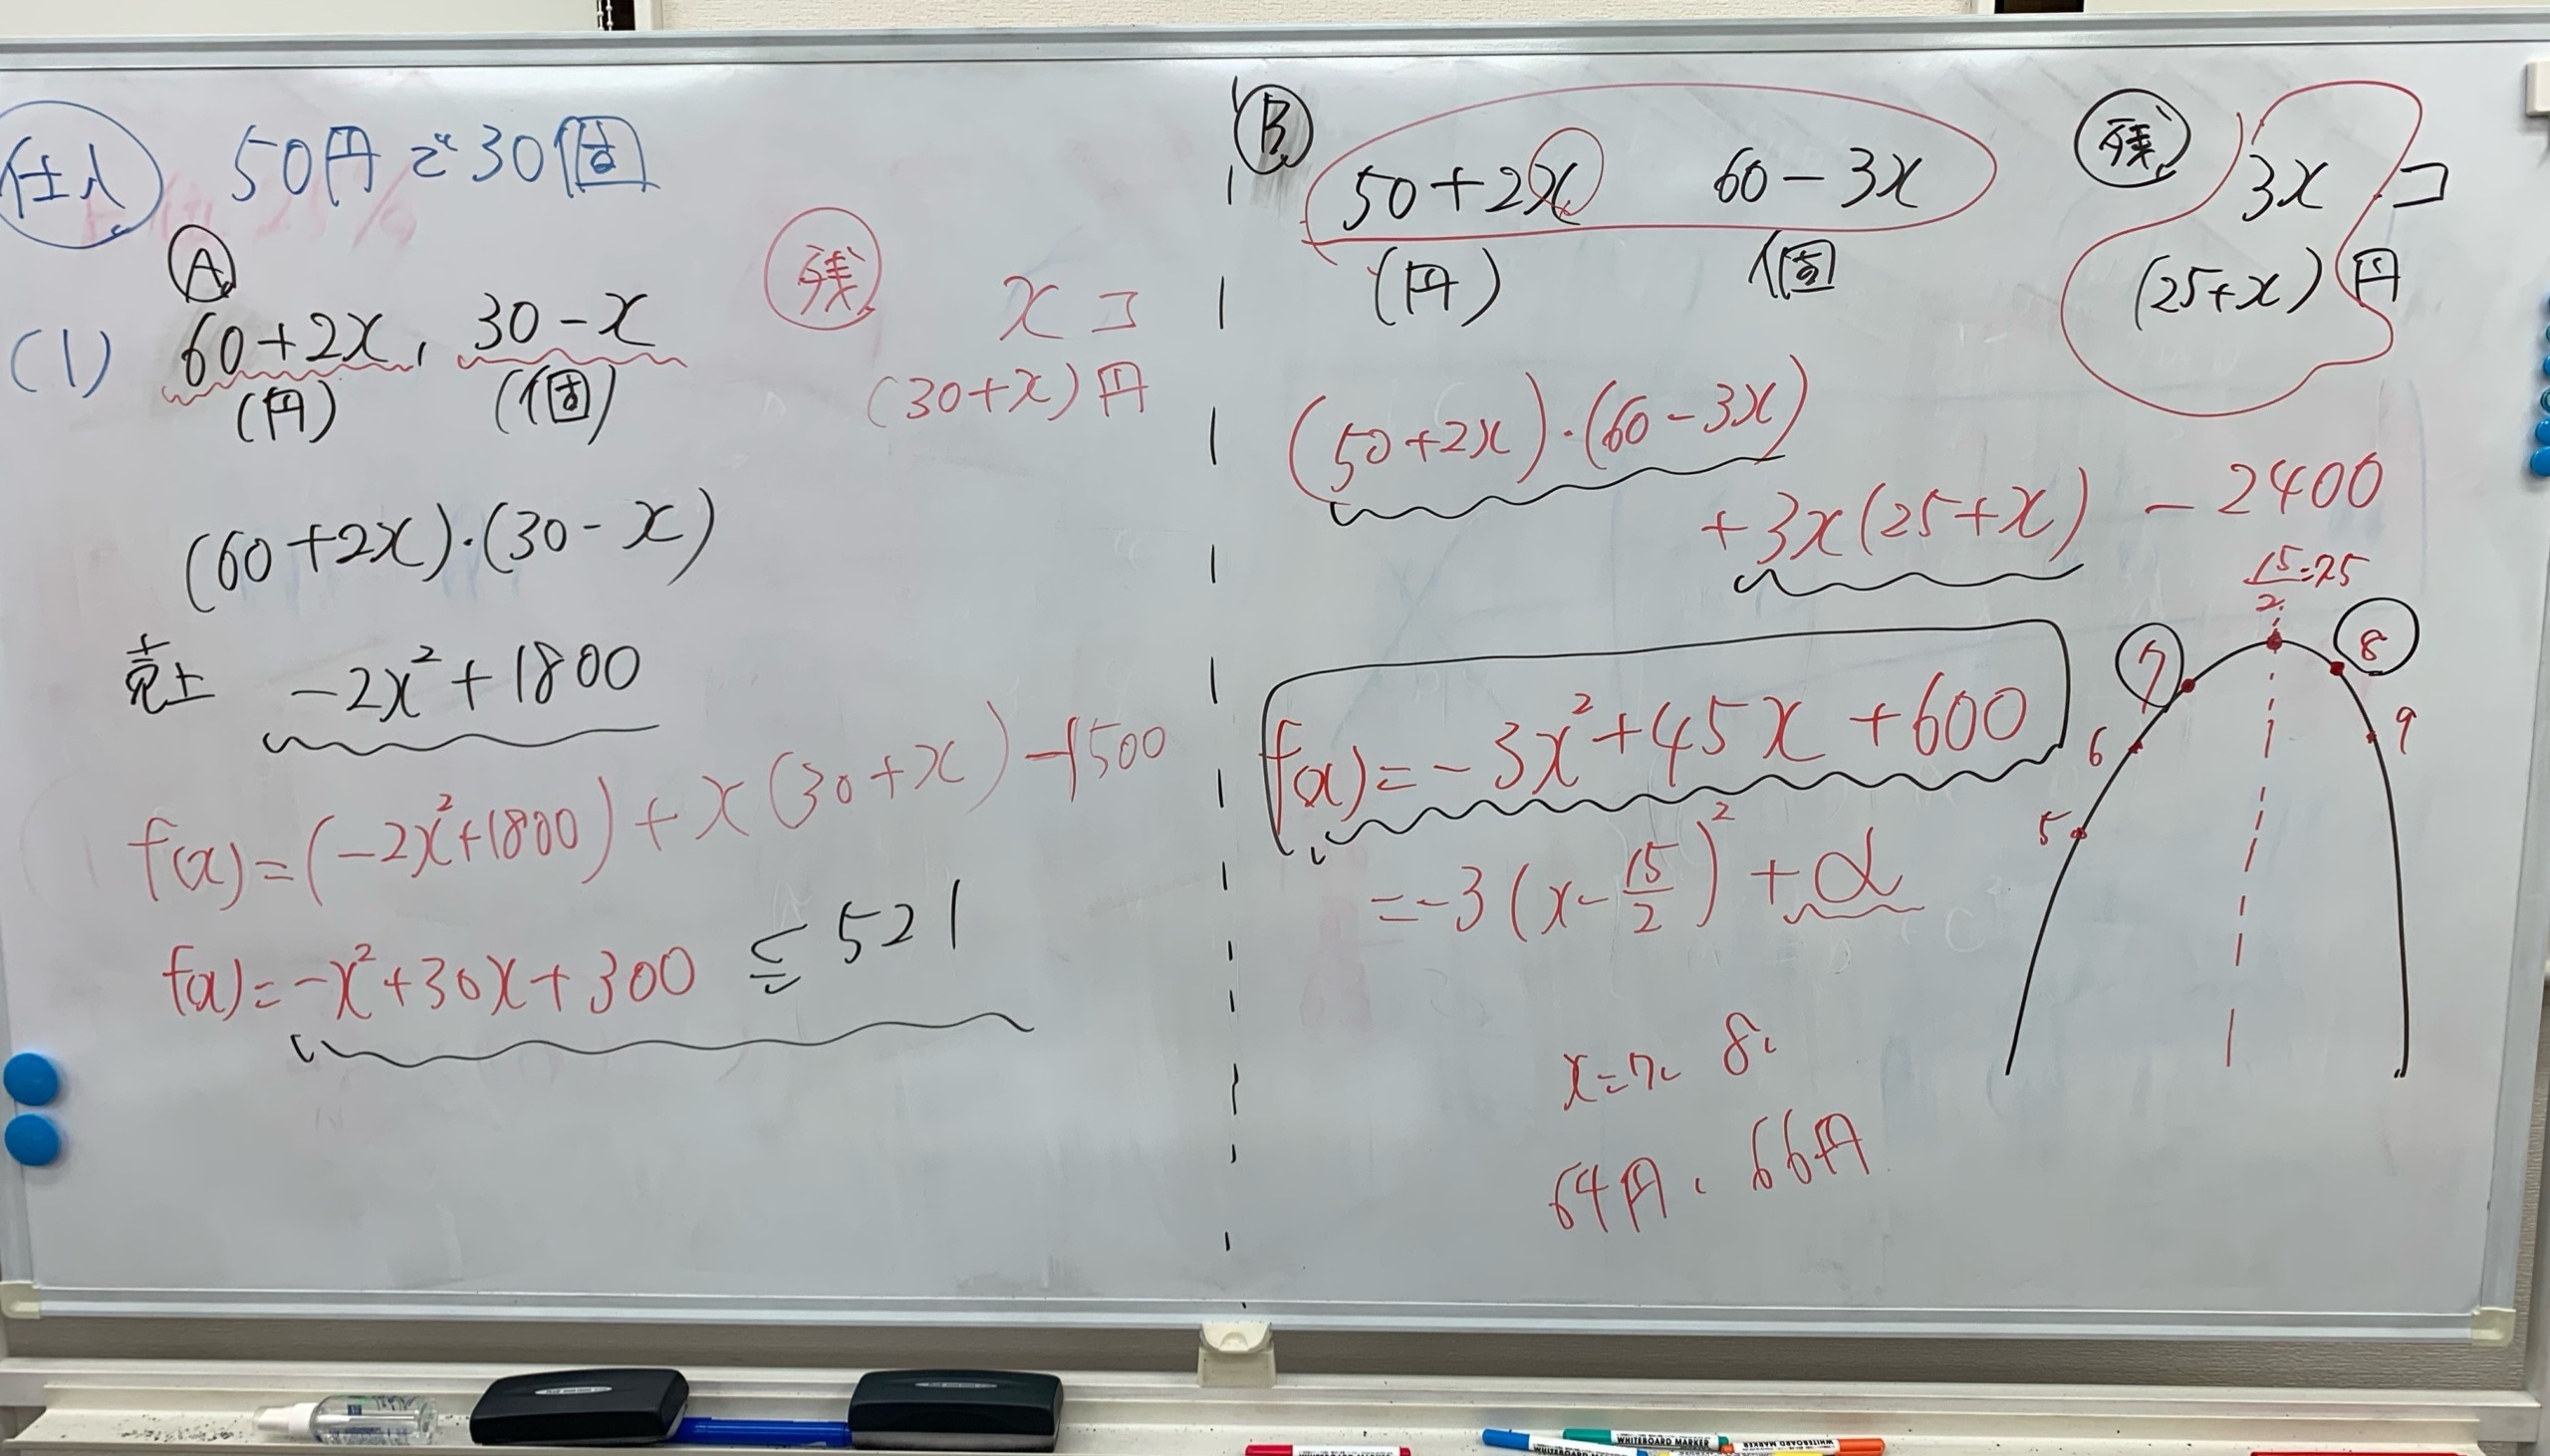 仕入 50円で30個
A
(1) 60+2x, 30-x
(円) (個)
残 xコ
(30+x)円
(60+2x)·(30-x)
売上 -2x²+1800
f(x)=(-2x²+1800)+x(30+x)-1500
f(x)=-x²+30x+300 ≦ 521
B 50+2x 60-3x
(円) 個
残 3x コ
(25+x)円
(50+2x)·(60-3x)
+3x(25+x) -2400
f(x)=-3x²+45x+600
=-3(x-15/2)²+α
x=7, 8,
64円, 66円
15/2=7.5
7 8
6 9
5
WHITEBOARD MARKER
WHITEBOARD MARKER